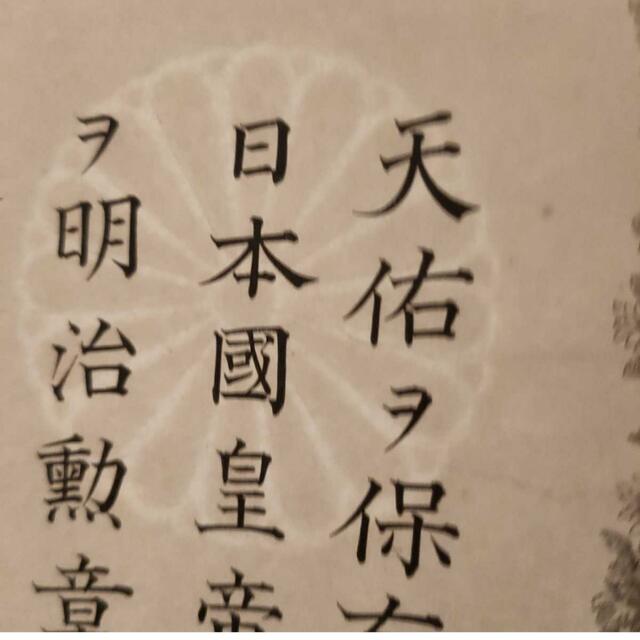 天佑ヲ保有
日本國皇帝
ヲ明治勲章